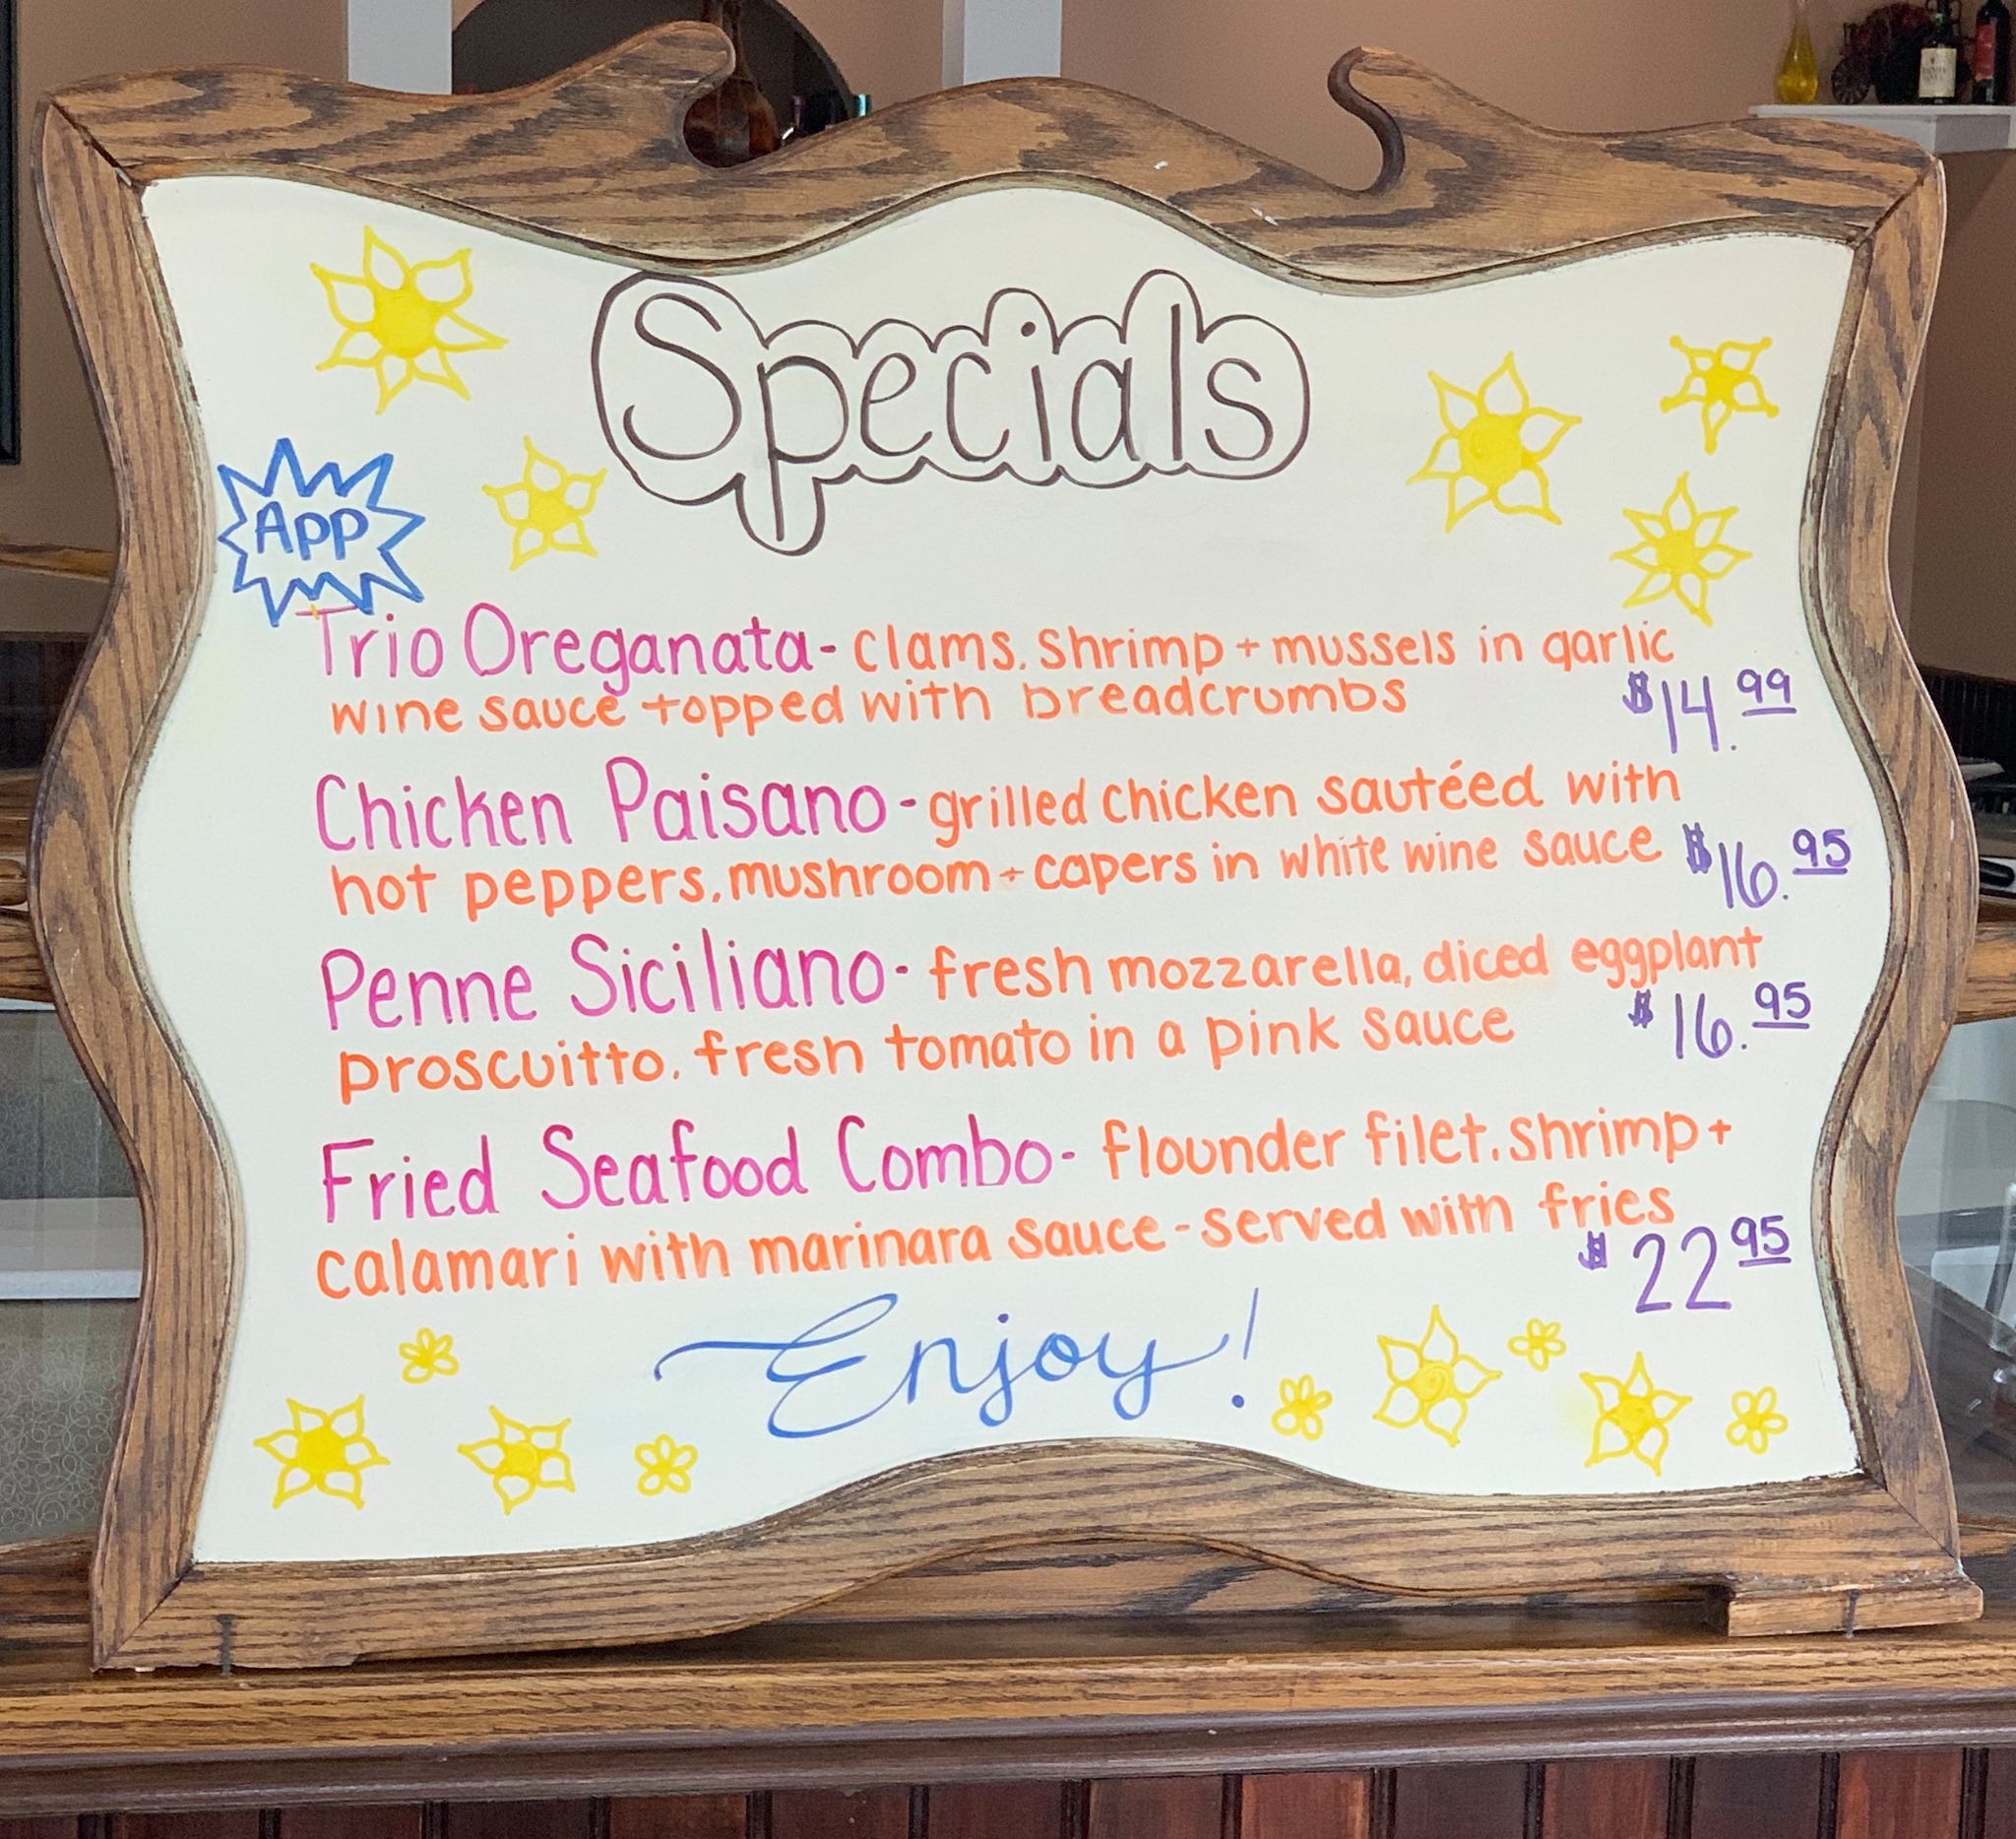 Specials
App
Trio Oreganata - clams, shrimp + mussels in garlic
wine sauce topped with breadcrumbs $14.99
Chicken Paisano - grilled chicken sautéed with
hot peppers, mushroom + capers in white wine sauce $16.95
Penne Siciliano - fresh mozzarella, diced eggplant
proscuitto, fresh tomato in a pink sauce $16.95
Fried Seafood Combo - flounder filet, shrimp +
calamari with marinara sauce - served with fries
$22.95
Enjoy!